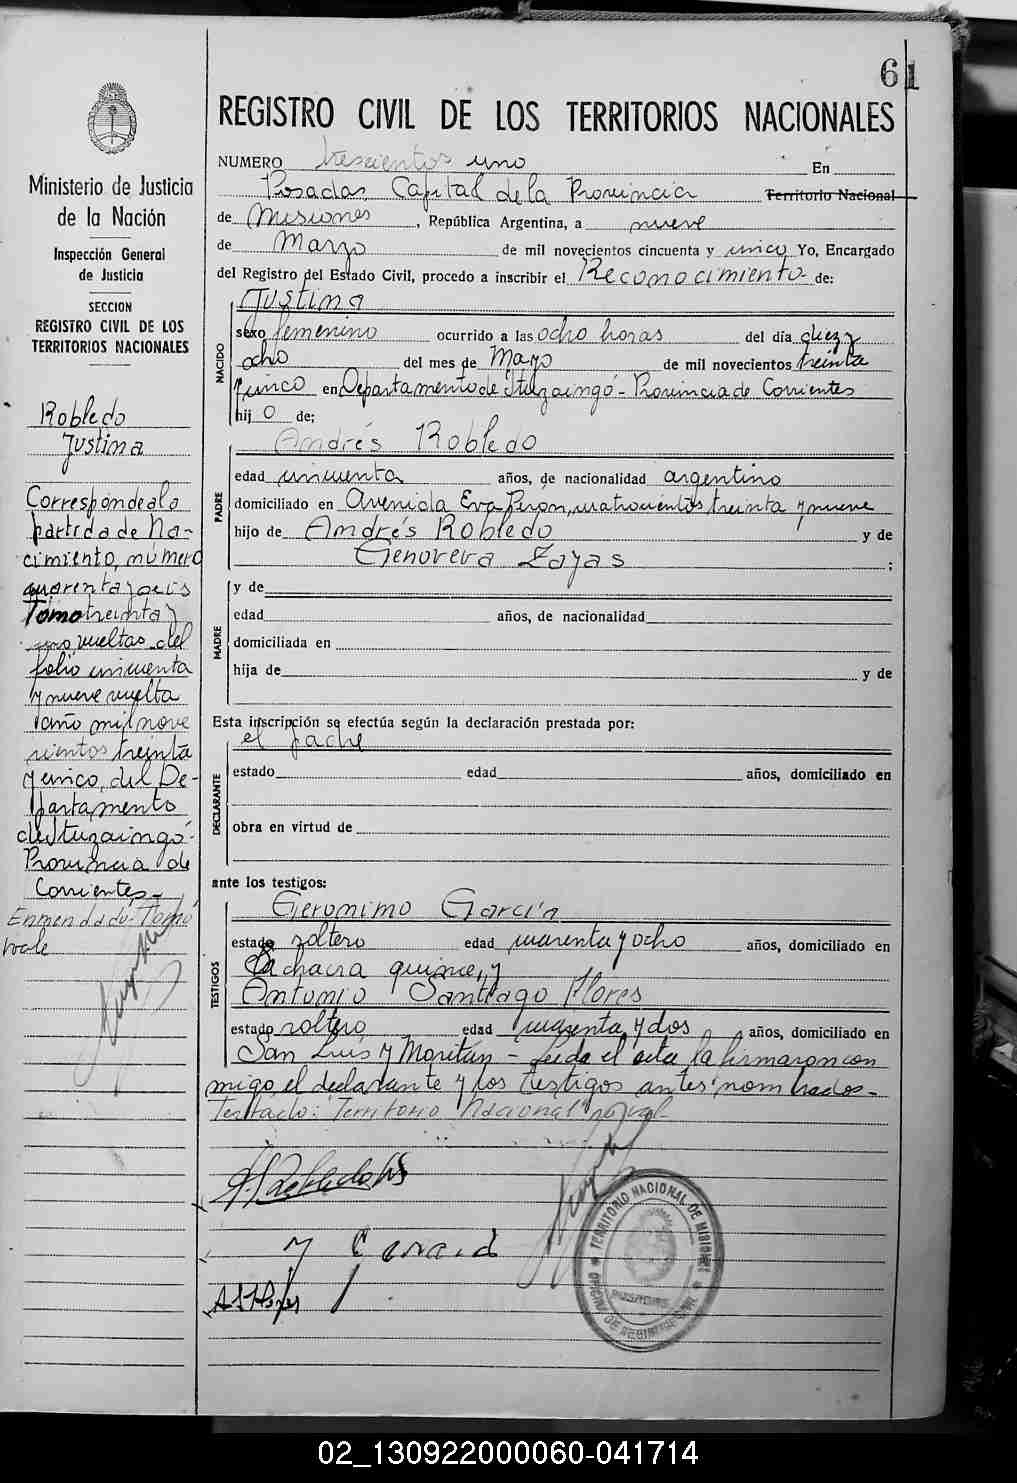 61
REGISTRO CIVIL DE LOS TERRITORIOS NACIONALES
Ministerio de Justicia
de la Nación
Inspección General
de Justicia
SECCION
REGISTRO CIVIL DE LOS
TERRITORIOS NACIONALES
Robledo
Justina
Corresponde a la
partida de Na-
cimiento, número
Tomo treinta y
uno vueltas del
folio cincuenta
y nueve vuelta
año mil nove
cientos treinta
y cinco, del De-
partamento
de Ituzaingó-
Provincia de
Corrientes-
Enmendado: Tomo
vale
NUMERO trescientos uno En
Posadas, Capital de la Provincia Territorio Nacional
de Misiones, República Argentina, a nueve
de Marzo de mil novecientos cincuenta y unico Yo, Encargado
del Registro del Estado Civil, procedo a inscribir el Reconocimiento de:
NACIDO
Justina
sexo femenino ocurrido a las ocho horas del día diez y
ocho del mes de Mayo de mil novecientos treinta
y cinco en Departamento de Ituzaingó - Provincia de Corrientes
hij o de;
PADRE
Andrés Robledo
edad cincuenta años, de nacionalidad argentino
domiciliado en Avenida Eva Peron, cuatrocientos treinta y nueve
hijo de Andrés Robledo y de
Genoveva Zayas ;
MADRE
y de
edad años, de nacionalidad
domiciliada en
hija de y de
Esta inscripción se efectúa según la declaración prestada por:
el padre
DECLARANTE
estado edad años, domiciliado en
obra en virtud de
ante los testigos:
TESTIGOS
Geronimo García
estado soltero edad cuarenta y ocho años, domiciliado en
La chacra quince, y
Antonio Santiago Flores
estado soltero edad cuarenta y dos años, domiciliado en
San Luis y Moritan - Leída el acta la firmaron con
migo el declarante y los testigos antes nombrados-
Testado: Territorio Nacional no vale
TERRITORIO NACIONAL DE MISIONES
POSADAS
OFICINA DE REGISTRO CIVIL
02_130922000060-041714